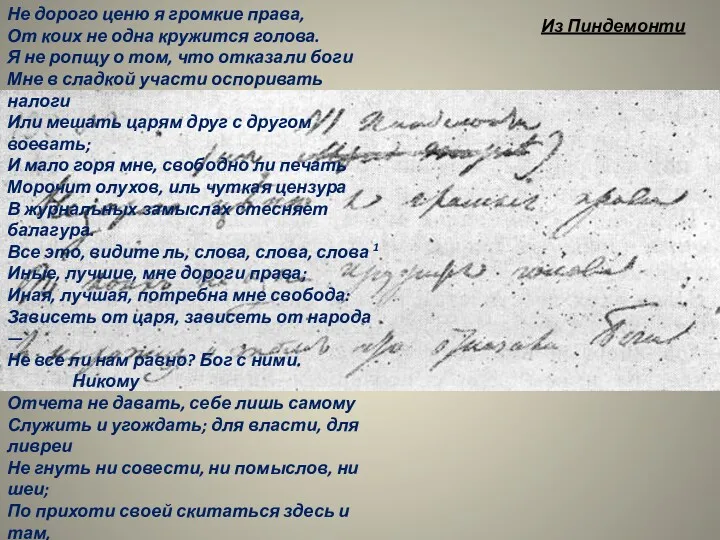 Из Пиндемонти
Не дорого ценю я громкие права,
От коих не одна кружится голова.
Я не ропщу о том, что отказали боги
Мне в сладкой участи оспоривать
налоги
Или мешать царям друг с другом
воевать;
И мало горя мне, свободно ли печать
Морочит олухов, иль чуткая цензура
В журнальных замыслах стесняет
балагура.
Все это, видите ль, слова, слова, слова 1
Иные, лучшие, мне дороги права;
Иная, лучшая, потребна мне свобода:
Зависеть от царя, зависеть от народа
—
Не все ли нам равно? Бог с ними.
Никому
Отчета не давать, себе лишь самому
Служить и угождать; для власти, для
ливреи
Не гнуть ни совести, ни помыслов, ни
шеи;
По прихоти своей скитаться здесь и
там,